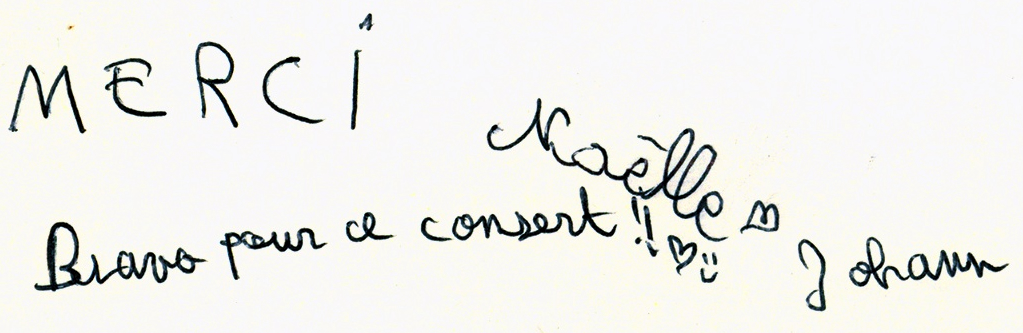 MERCI
Noëlle
Bravo pour ce consert !! ♡ :)
Johann